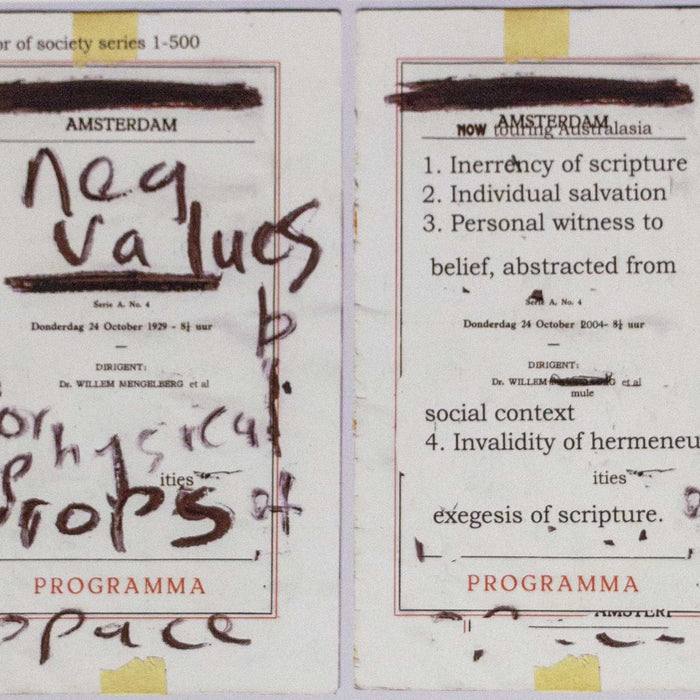 or of society series 1-500
AMSTERDAM
neg
values
Serie A. No. 4
Donderdag 24 October 1929 - 8¼ uur
DIRIGENT:
Dr. WILLEM MENGELBERG et al
or hysical
ities
props of
PROGRAMMA
space
AMSTERDAM
NOW touring Australasia
1. Inerrency of scripture
2. Individual salvation
3. Personal witness to
belief, abstracted from
Serie A. No. 4
Donderdag 24 October 2004- 8¼ uur
DIRIGENT:
Dr. WILLEM et al
mule
social context
4. Invalidity of hermeneu
ities
exegesis of scripture.
PROGRAMMA